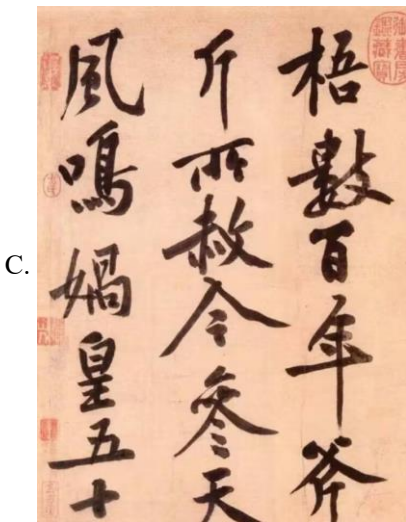 C.
梧數百年斧
斤所赦今參天
風鳴媧皇五十